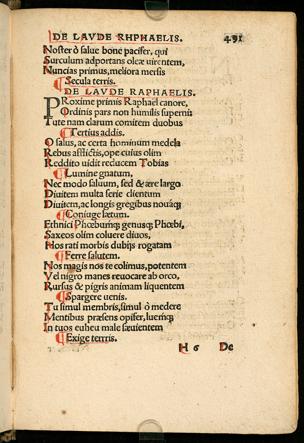 DE LAVDE RHPHAELIS. 491
Noster ô salue bone pacifer, qui
Surculum adportans oleæ uirentem,
Nuncias primus, meliora mersis
Secula terris.
DE LAVDE RAPHAELIS.
PRoxime primis Raphaël canore,
Ordinis pars non humilis superni:
Tute nam clarum comitem duobus
Tertius addis.
O salus, ac certa hominum medela
Rebus afflictis, ope cuius olim
Reddito uidit reducem Tobias
Lumine gnatum.
Nec modo saluum, sed & ære largo
Diuitem multa serie clientum
Diuitem, ac longis gregibus nouaq;
Coniuge lætum.
Ethnici Phœbumq; genusq; Phœbi,
Saxeos olim coluere diuos,
Hos rati morbis dubijs rogatam
Ferre salutem.
Nos magis nos te colimus, potentem
Vel nigro manes reuocare ab orco,
Rursus & pigris animam liquentem
Spargere uenis.
Tu simul membris, simul ô medere
Mentibus præsens opifer, luemq;
In tuos euheu male sæuientem
Exige terris.
H 6 De